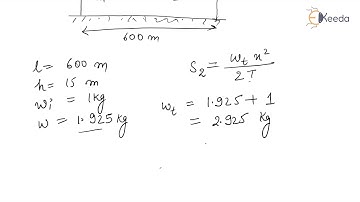 Ekeeda
600 m
l = 600 m
h = 15 m
wi = 1kg
w = 1.925 kg
S2 = wt x² / 2T
wt = 1.925 + 1
= 2.925 kg